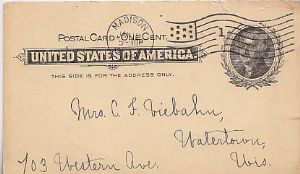 MADISON
POSTAL CARD-ONE CENT.
1
UNITED STATES OF AMERICA.
THIS SIDE IS FOR THE ADDRESS ONLY.
Mrs. C. F. Viebahn,
Watertown,
703 Western Ave. Wis.